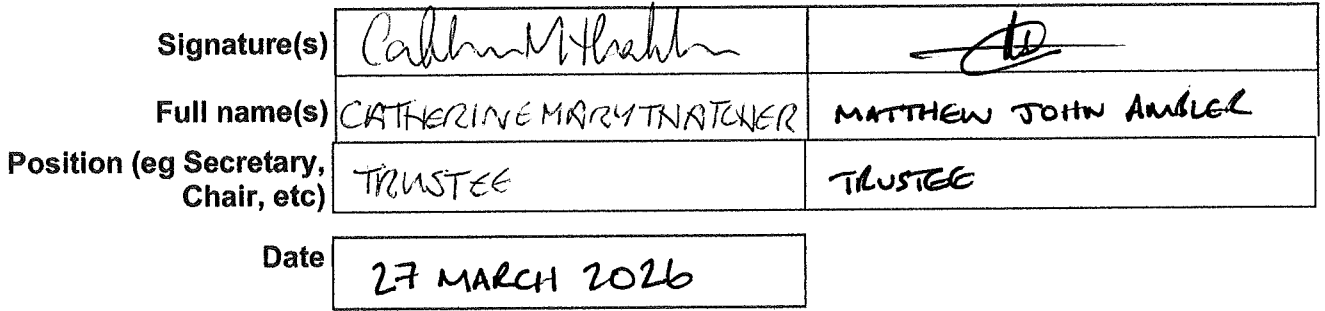 Signature(s)
Full name(s) CATHERINE MARY THATCHER MATTHEW JOHN AMBLER
Position (eg Secretary, Chair, etc) TRUSTEE TRUSTEE
Date 27 MARCH 2026